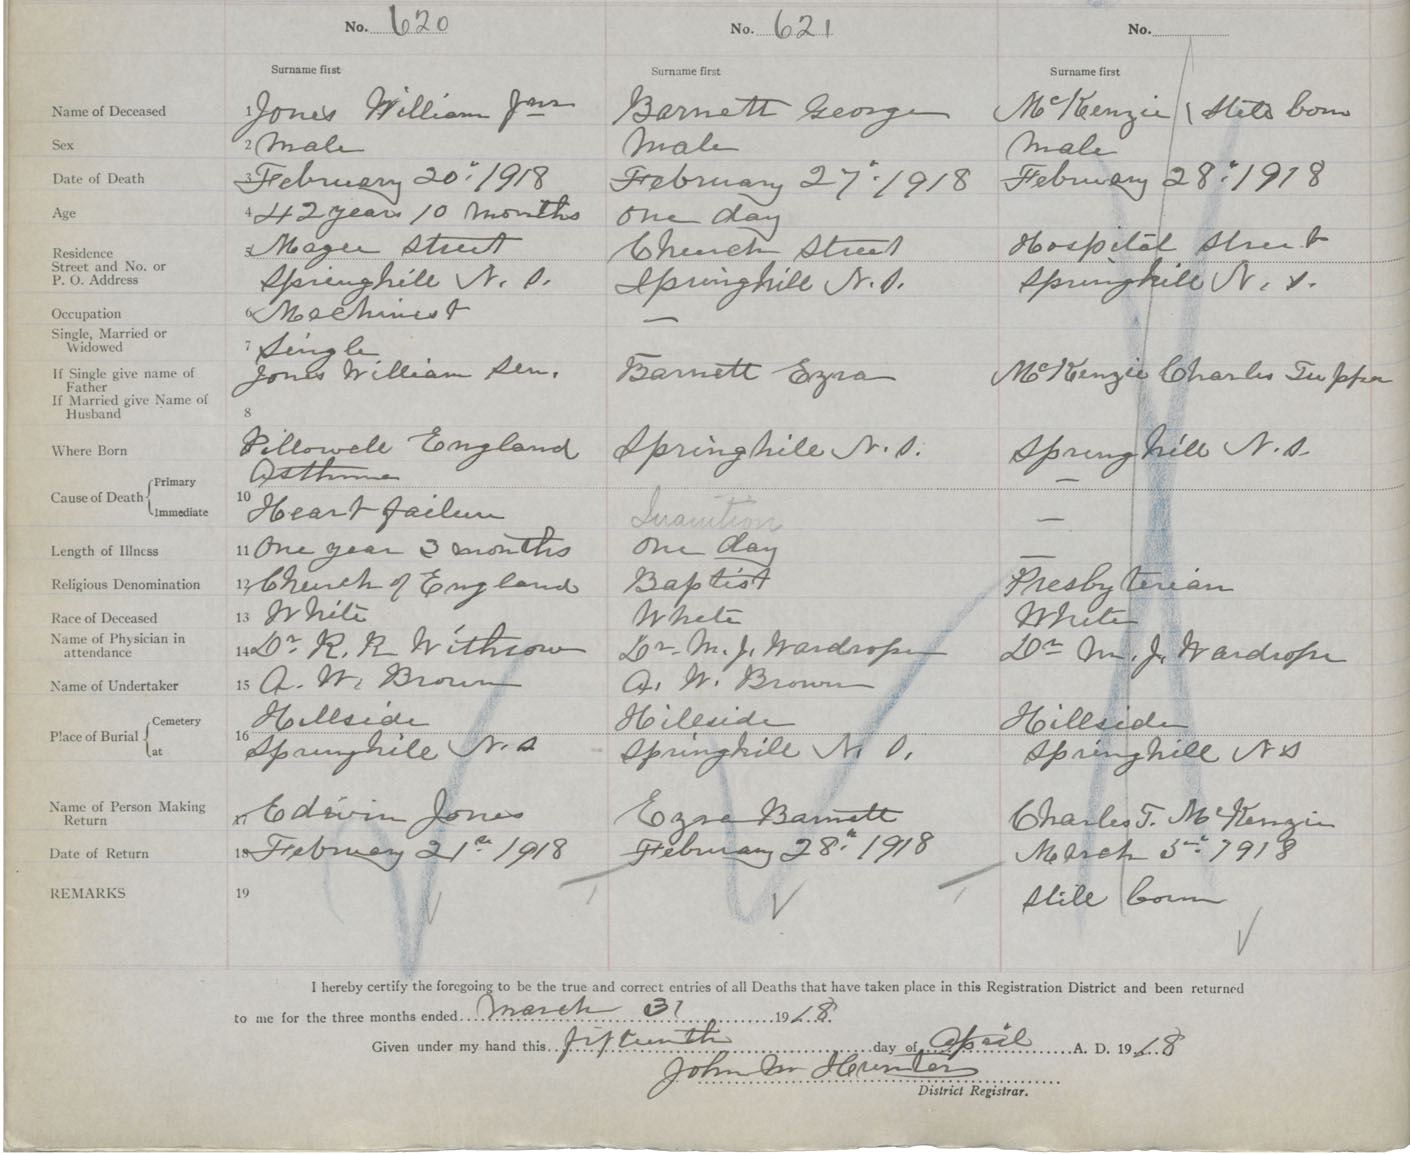 No. 620 No. 621 No.
Surname first Surname first Surname first
Name of Deceased 1 Jones William Jnr Barnett George McKenzie (Still born
Sex 2 Male Male Male
Date of Death 3 February 20th 1918 February 27th 1918 February 28th 1918
Age 4 42 years 10 months One day
Residence 5 Magee Street Church Street Hospital Street
Street and No. or
P. O. Address Springhill N. S. Springhill N. S. Springhill N. S.
Occupation 6 Machinist —
Single, Married or
Widowed 7 Single
If Single give name of Jones William Sen. Barnett Ezra McKenzie Charles Tupper
Father
If Married give Name of
Husband 8
Where Born Pillowell England Springhill N. S. Springhill N. S.
Cause of Death Primary Asthma —
Immediate 10 Heart failure Inanition —
Length of Illness 11 One year 3 months One day —
Religious Denomination 12 Church of England Baptist Presbyterian
Race of Deceased 13 White White White
Name of Physician in
attendance 14 Dr R. R. Withrow Dr. M. J. Wardrope Dr M. J. Wardrope
Name of Undertaker 15 A. W. Brown A. W. Brown
Place of Burial Cemetery 16 Hillside Hillside Hillside
at Springhill N. S Springhill N. S. Springhill N S
Name of Person Making
Return 17 Edwin Jones Ezra Barnett Charles T. McKenzie
Date of Return 18 February 21st 1918 February 28th 1918 March 1918
REMARKS 19 Still born
I hereby certify the foregoing to be the true and correct entries of all Deaths that have taken place in this Registration District and been returned
to me for the three months ended March 31 1918.
Given under my hand this fifteenth day of April A. D. 1918
John M Hunter
District Registrar.